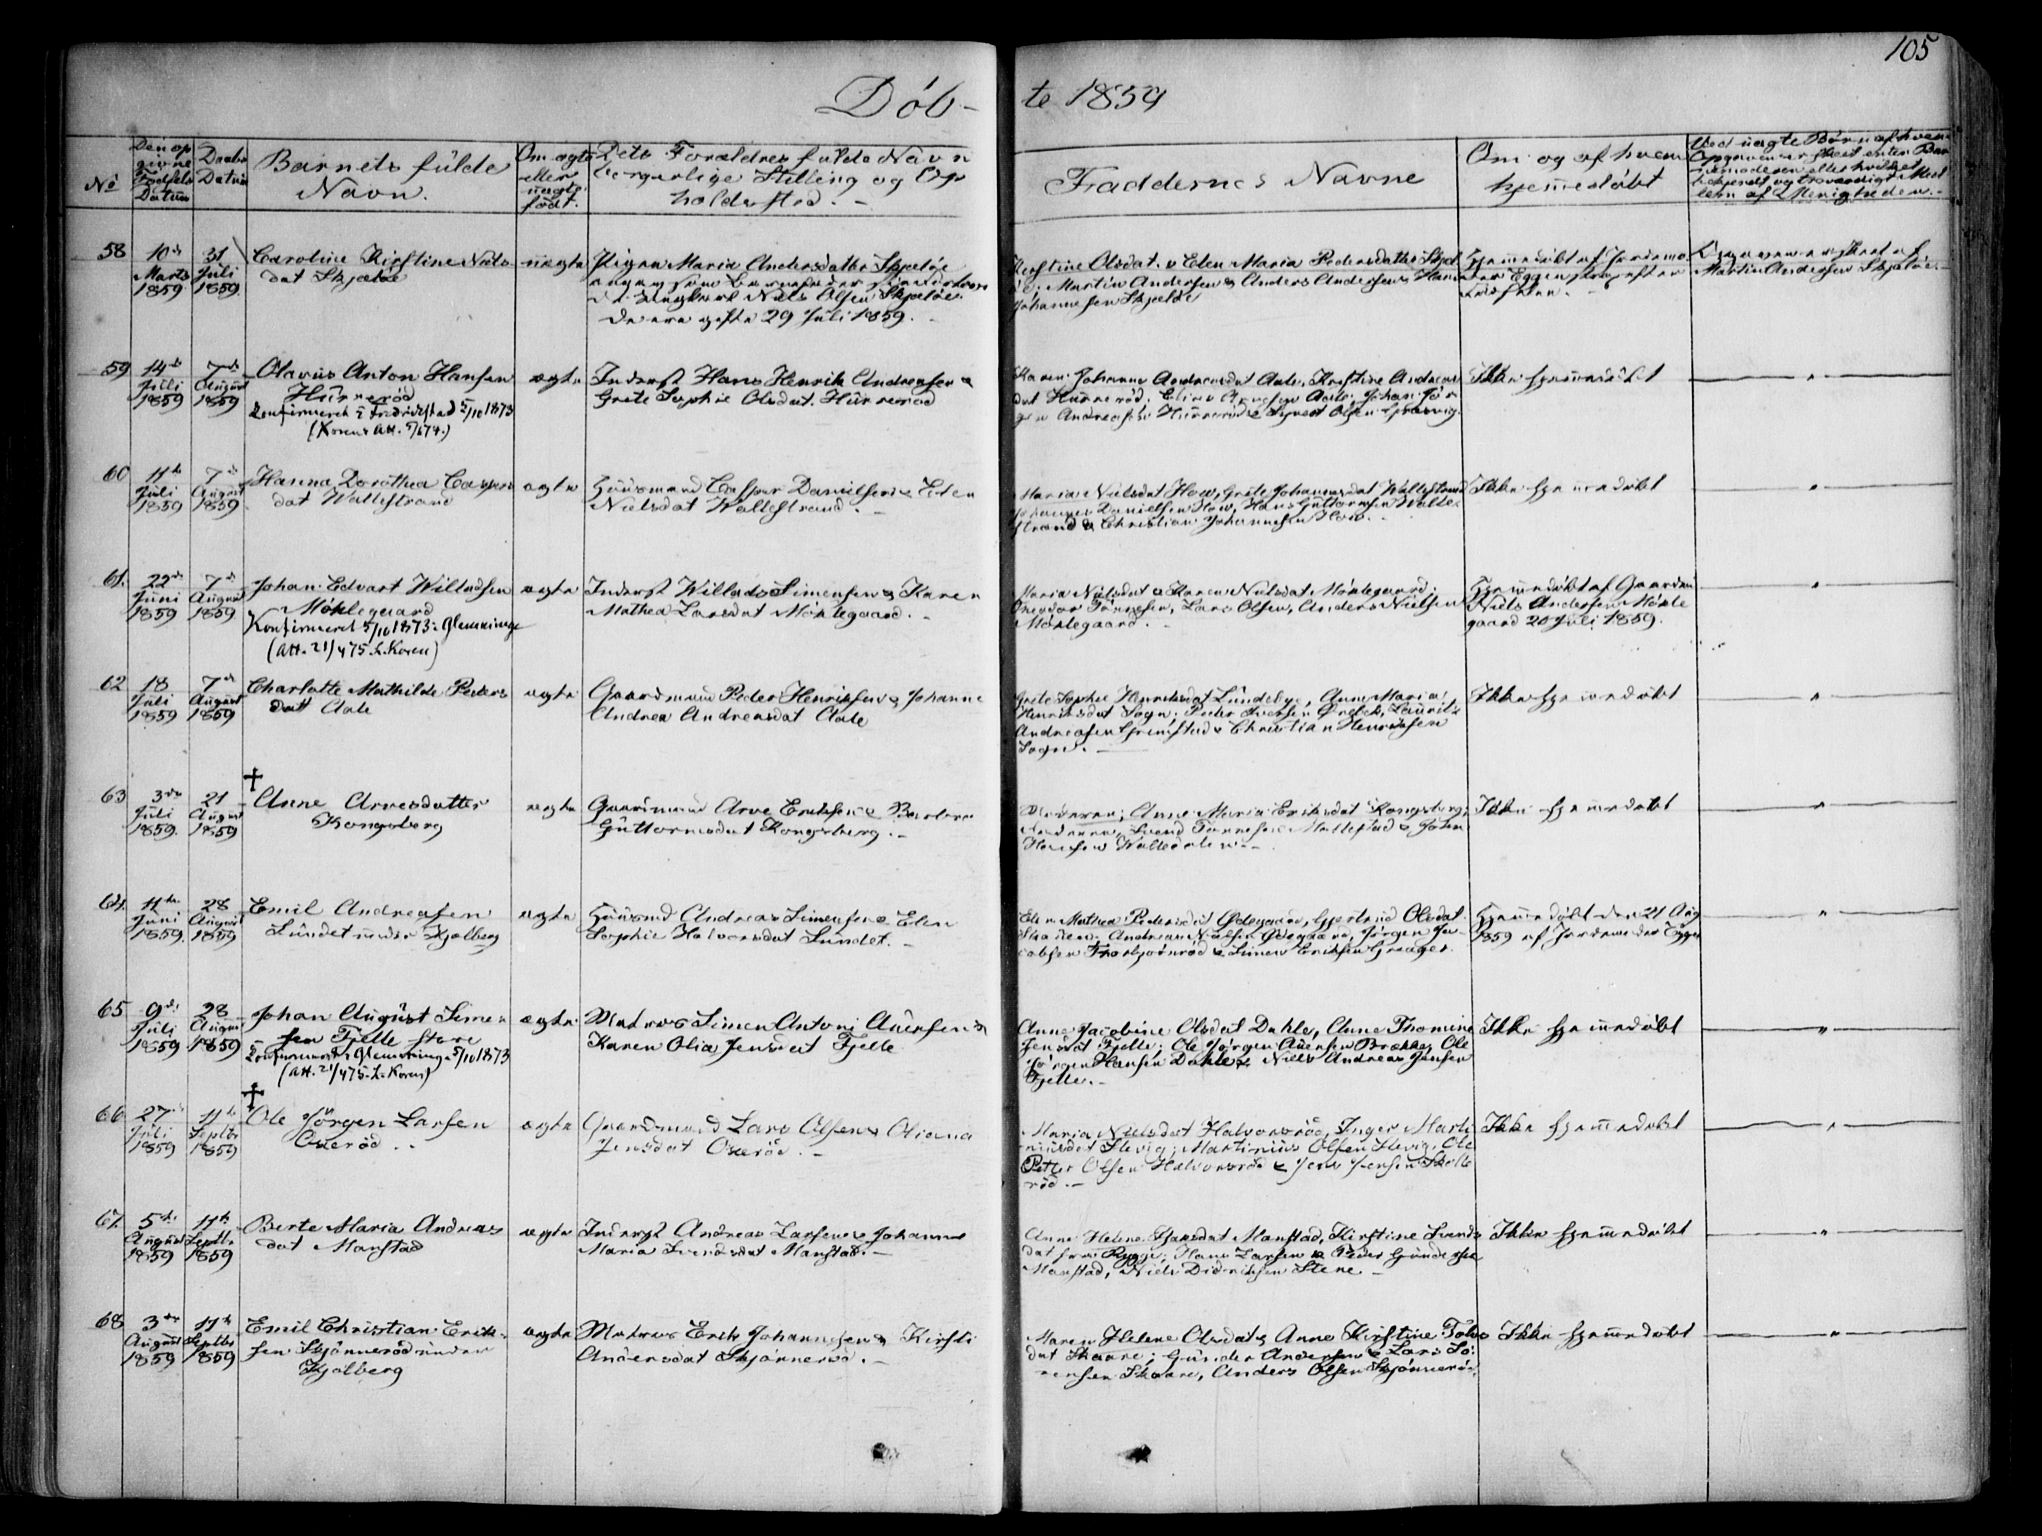 105
Döb-
te 1859
No
Den op
givne
Fødsels
Datum
Daabs
Datum
Barnets fulde
Navn.
Om ægte
eller
uægte
født.
Dets Forældres fulde Navn
borgerlige Stilling og Op
holdssted. -
Faddernes Navne
Om og af hvem
hjemmedöbt
Ved uægte Börn af hvem
58
10de
Marts
1859
31
Juli
1859
Caroline Kirstine Niels
dat Skjælöe
uægte
Pigen Maria Andersdatter Skjælöe
Ungkarl Niels Olsen Skjelöe.
De ere gifte 29 Juli 1859.
Kirstine Olsdat. & Elen Maria Pedersdatter Skjel
öe. Martin Andersen & Anders Andersen, Hans
Johannesen Skjelöe
Hjemmedöbt af Jordemo
der Eggen
Opgaven er skeet af
Martin Andersen Skjelöe.
59
14de
Juli
1859
7de
August
1859
Olavus Anton Hansen
Hunneröd
Konfirmeret i Fredrikstad 5/10 1873
(Korens Att. 5/674.)
ægte
Inderst Hans Henrik Andreasen &
Grete Sophie Olsdat. Hunneröd
Karen Johanne Andreasdat Aale, Kirstine Andreas
dat Hunneröd,
gen Andreasen Hunneröd & Syvert Olsen
Ikke hjemmedöbt
60
11te
Juli
1859
7de
August
1859
Hanna Dorothea Caspers
dat Wallestrand
ægte
Huusmand Casper Danielsen & Elen
Nielsdat Wallestrand. -
Maria Nielsdat How, Grete Johannesdat Wallestrand
Johannes Danielsen How, Hans Guttormsen Walle
strand & Christian Johannesen How. -
Ikke hjemmedöbt
61.
22de
Juni
1859
7de
August
1859
Johan Edvart Willadsen
Möklegaard
Konfirmeret 5/10 1873 i Glemminge
(Att. 21/475. L. Koren)
ægte
Inderst Willads Simensen & Karen
Mathea Larsdat Möklegaard. -
Maria Nielsdat & Karen Nielsdat Möklegaard;
Lars Olsen, Anders Nielsen
Möklegaard. -
Hjemmedöbt af Gaardm
Niels Andersen Mökle
gaard 20 Juli 1859.
62
18
Juli
1859
7de
August
1859
Charlotte Mathilde Peders
datt Aale
ægte
Gaardmand Peder Henriksen & Johanne
Andrea Andreasdat Aale
Grete Sophie Henriksdat Lundeby, Anne Maria
Henriksdat Sogn; Peder Iversen Örebek, Lauritz
Andreasen Grimstad & Christian Henriksen
Sogn. -
Ikke hjemmedöbt
63
3die
Juli
1859
21
August
1859
†
Anne Arvesdatter
Kongsberg
ægte
Gaardmand Arve Eriksen & Berthe
Guttormsdat Kongsberg. -
Moderen, Anne Maria Eriksdat Kongsberg;
Faderen, Svend Tönnesen Mallestad & Johan
Hansen Walledalen. -
Ikke hjemmedöbt
64
11te
Juni
1859.
28
August
1859
Emil Andreasen
Lundet under Kjølberg
ægte
Huusmd Andreas Simensen & Elen
Sophie Halvorsdat Lundet. -
Elen Mathea Pedersdat Ödegaard, Gjertrud Olsdat
Andreas Nielsen Ödegaard, Jörgen Ja-
cobsen Thorbjörnröd & Simen Eriksen Greager.
Hjemmedöbt den 21 Aug
1859 af Jordemoder Eggen
65
9de
Juli
1859
28
August
1859
Johan August Simen
sen Fjelle store
Konfirmeret i Glemminge 5/10 1873
(Att. 21/475. L. Koren)
ægte
Matros Simen Antoni Auensen &
Karen Olia Jensdat Fjelle
Anne Jacobine Olsdat Dahle, Anne Thomine
Jensdat Fjelle; Ole Jörgen Auensen Brække, Ole
Jörgen Hansen Dahle & Niels Andreas Jensen
Fjelle. -
Ikke hjemmedöbt
66
27
Juli
1859
11te
Septbr
1859
†
Ole Jörgen Larsen
Oxeröd
ægte
Gaardmand Lars Olsen & Oliana
Jensdat Oxeröd. -
Maria Nielsdat Halvorsröd, Inger Marti
niusdat Slevig; Martinius Olsen Slevig, Ole
Petter Olsen Halvorsröd & Jens Jensen Skolle
röd. -
Ikke hjemmedöbt
67.
5te
August
1859
11te
Septbr
1859
Berte Maria Andreas
dat Manstad
ægte
Inderst Andreas Larsen & Johanne
Maria Svendsdat Manstad. -
Anne Helene Hansdat Manstad, Kirstine Svends
dat fra Rygge; Hans Larsen & Peder Gundersen
Manstad, Niels Didriksen Stene -
Ikke hjemmedöbt
68
3die
August
1859
11te
Septbr
1859
Emil Christian Erik-
sen Skjönneröd under
Kjølberg
ægte
Matros Erik Johannesen & Kirsti
Andersdat Skjönneröd. -
Maren Helene Olsdat & Anne Kirstine Tolvs
dat Skaare; Gunder Andersen & Lars Sö-
rensen Skaare, Anders Olsen Skjönneröd.
Ikke hjemmedöbt